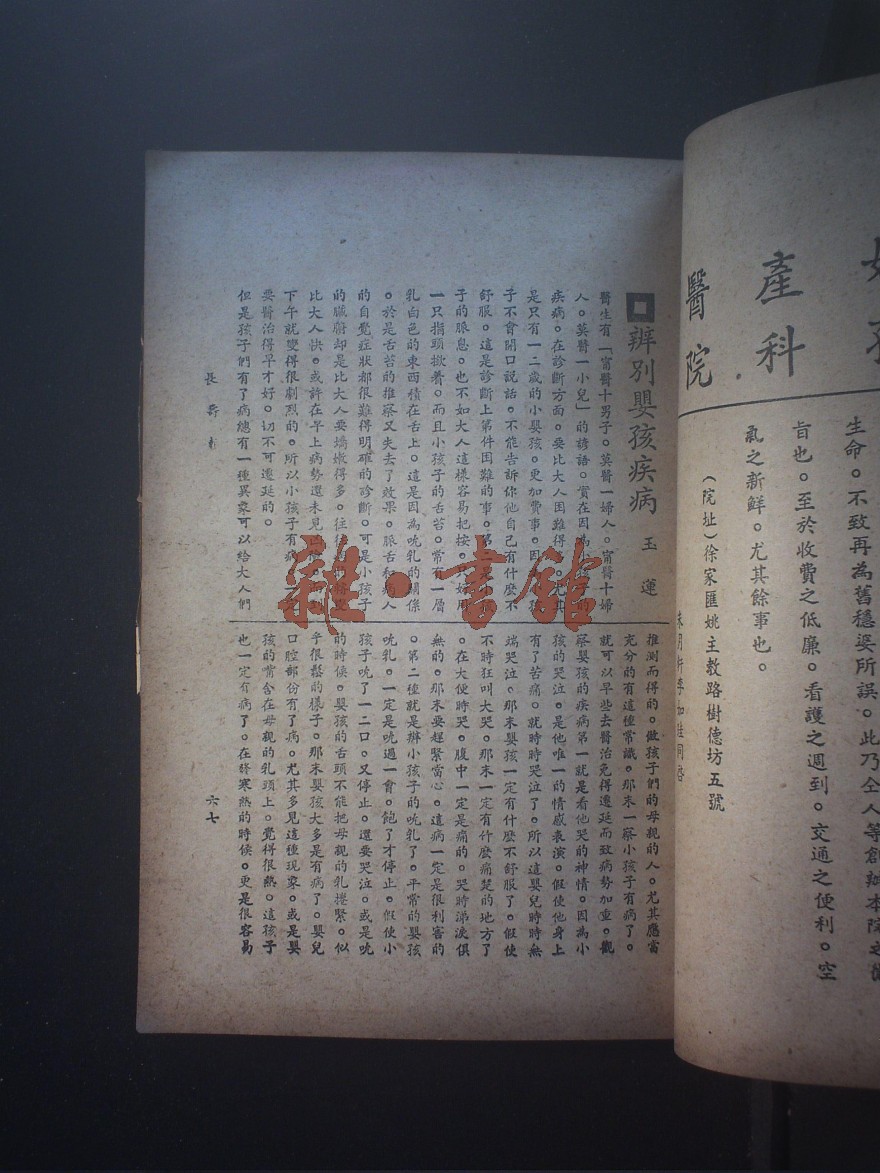 產科
醫院
生命。不致再為舊穩婆所誤。此乃仝人等創辦本院之
旨也。至於收費之低廉。看護之週到。交通之便利。空
氣之新鮮。尤其餘事也。
(院址)徐家匯姚主教路樹德坊五號
辨別嬰孩疾病 玉蓮
醫生有「甯醫十男子。莫醫一婦人。甯醫十婦
人。莫醫一小兒」的諺語。實在因為
疾病。在診斷方面。要比大人困難得
是只有一二歲的小嬰孩。更加費事。因
子不會開口說話。不能告訴你他自己有什麼不
舒服。這是診斷上第一件困難的事。第二是小孩
子的脈息。也不如大人這樣容易把按。只好用
一只指頭撳着。而且小孩子的舌苔。常有一層
乳白色的東西積在舌上。這是因為吮乳的關係
。於是舌苔的推察又失去了效果。脈舌和病人
的自覺症狀都很難得明確的診斷。可是小孩子
的臟腑却是比大人要嬌嫩得多。往
比大人快。或許在早上病勢還未見
下午就變得很劇烈的。所以小孩子有病。一定
要醫治得早才好。切不可遷延的。
但是孩子們有了病總有一種異象可以給大人們
推測而得的。做孩子們的母親的人。尤其應當
充分的有這種常識。那末一察小孩子有病了。
就可以早些去醫治免得遷延而致病勢加重。觀
察嬰孩的疾病第一就是看他哭的神情。因為小
孩的哭泣。是他唯一的情感表演。假使他身上
有了苦痛。就時時哭泣了。所以這嬰兒時時無
端哭泣。那末嬰孩一定有什麼不舒服了。假使
不時狂叫大哭。那末一定有什麼痛楚的地方了
。在大便時哭。腹中一定是痛的。哭時涕淚俱
無的。那末要趕緊當心。這病一定是很利害的
。第二種就是辨小孩子的吮乳了。平常的嬰孩
吮乳。一定是吮過一會。飽了才停止。假使小
孩子吮了一二口。又停止。還要哭泣。或是吮
的時候。嬰孩的舌頭不能把母親的乳捲緊。似
乎很鬆的樣子。那末嬰孩大多是有病了。嬰兒
口腔部份有了病。尤其多見這種現象。或是嬰
孩的嘴含在母親的乳頭上。覺得很熱。這孩子
也一定有病了。在發寒熱的時候。更是很容易
長壽
六七
雜·書館